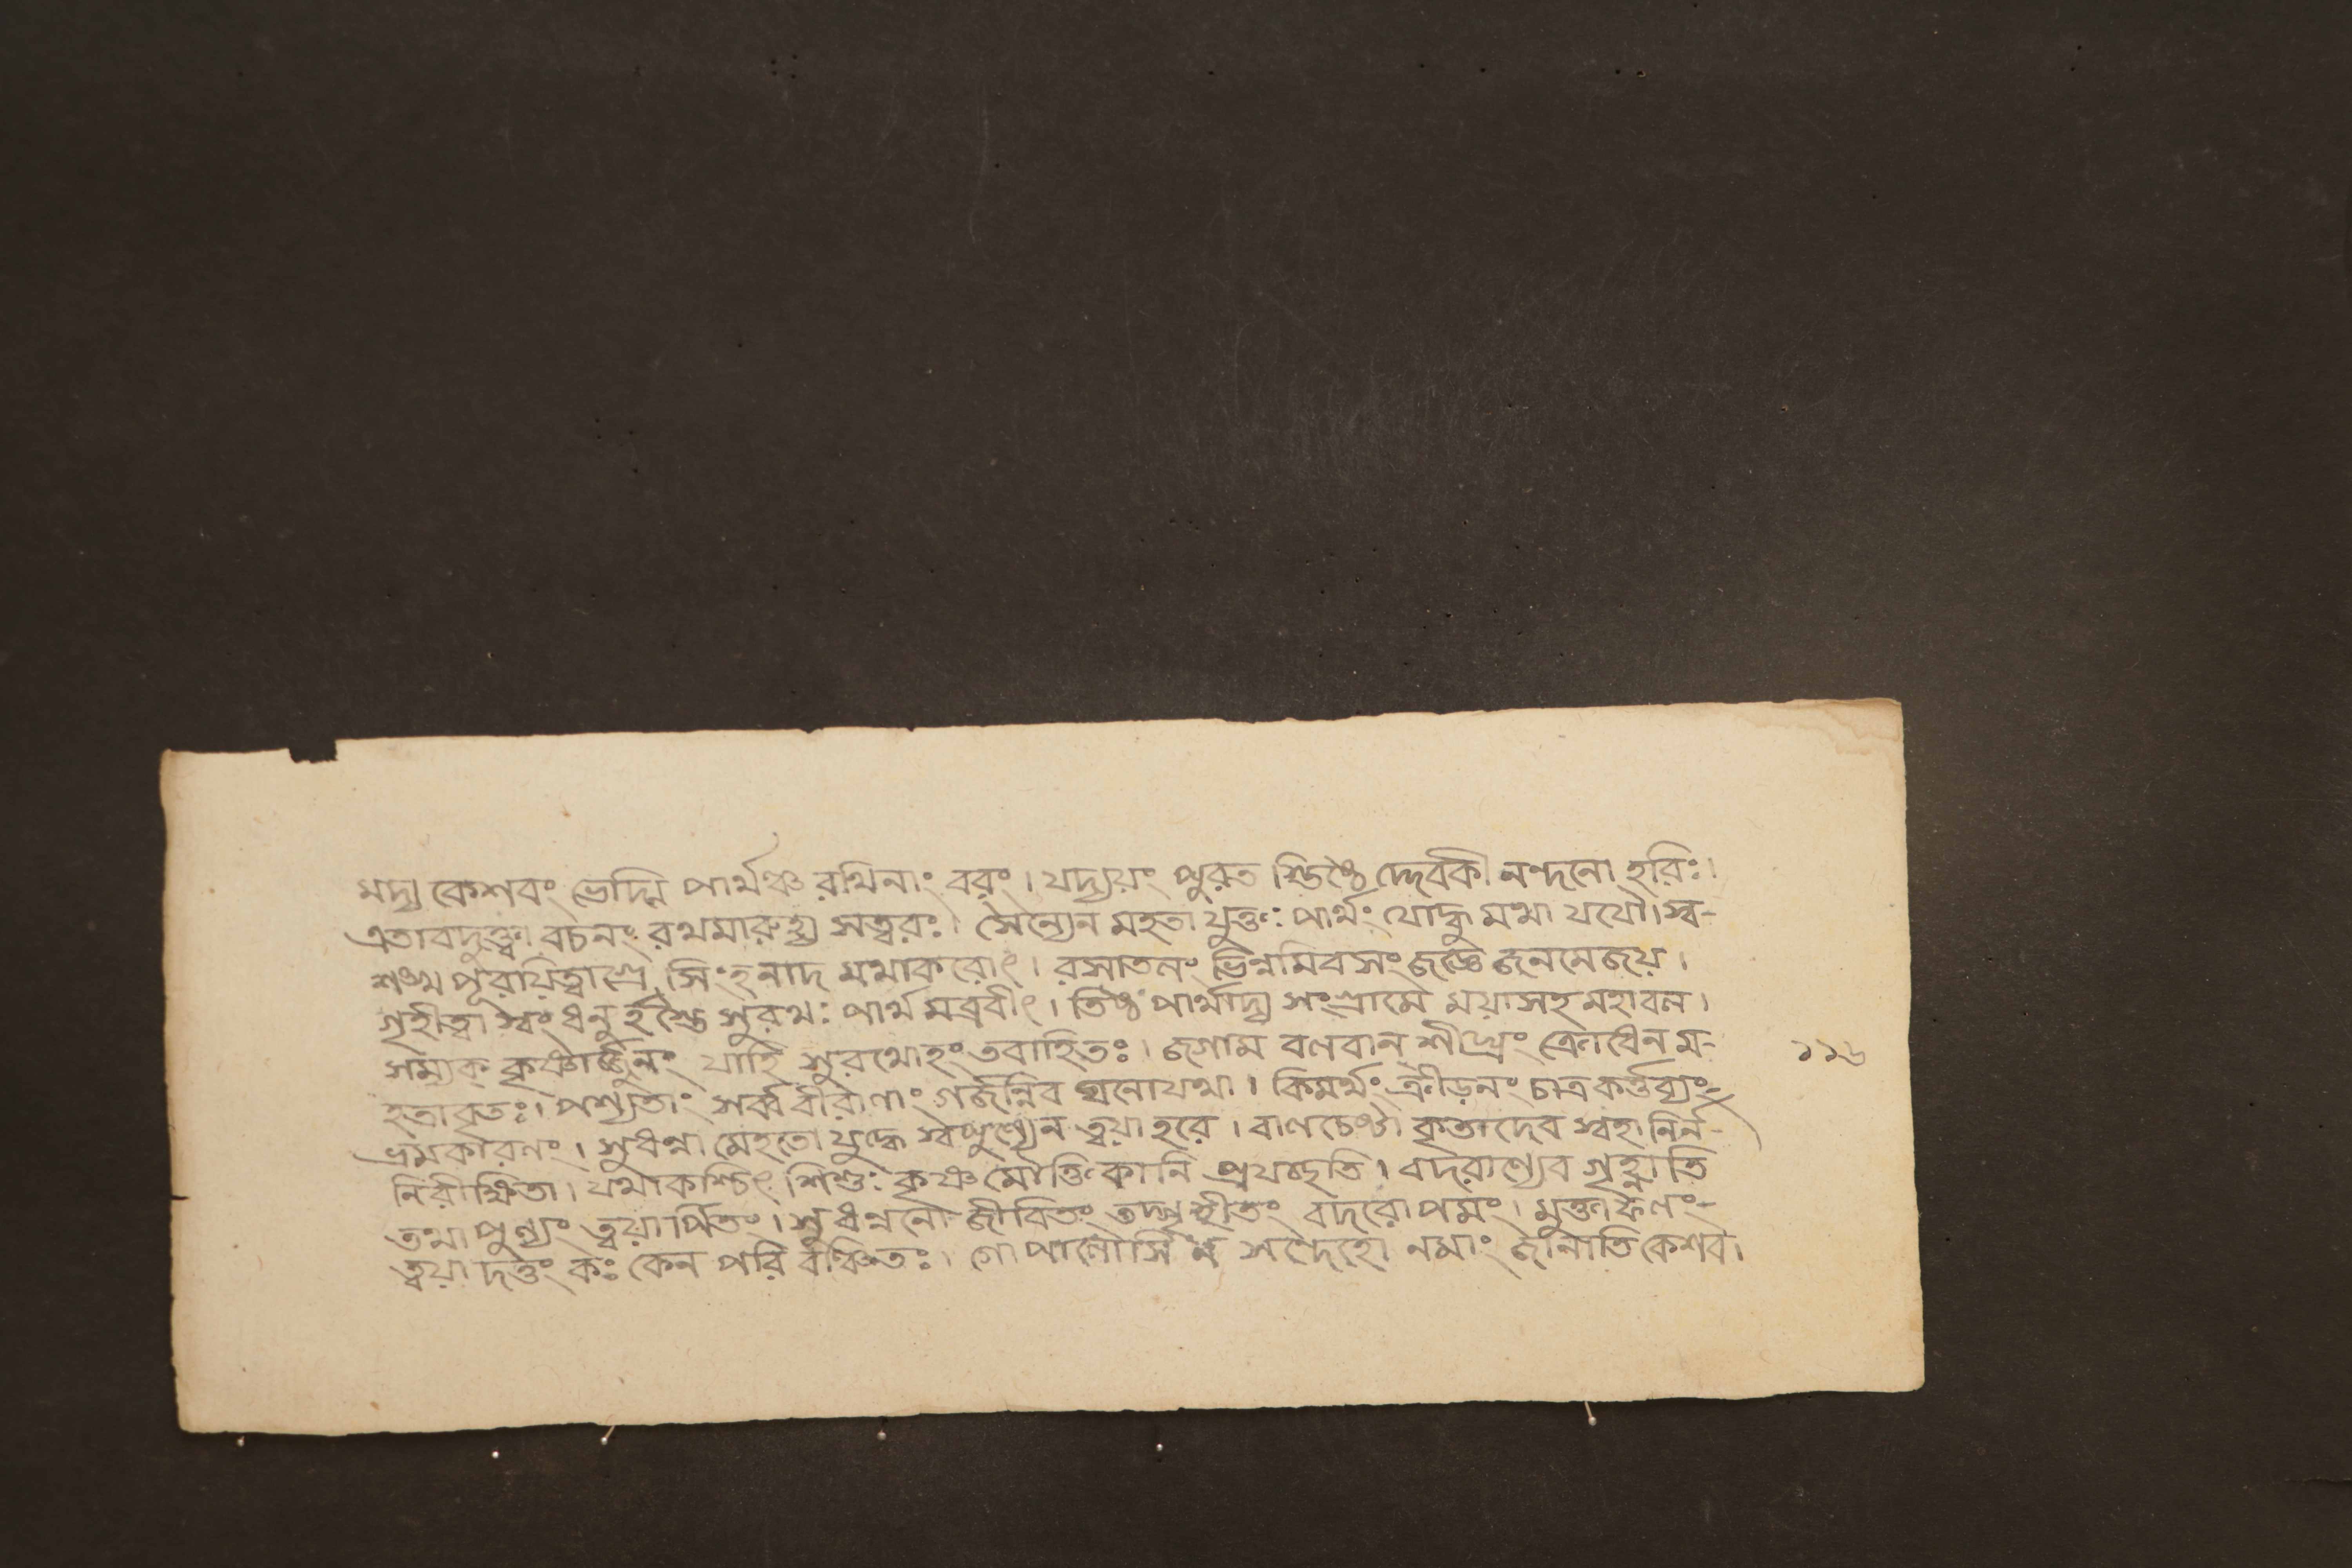 মদ্য কেশবং ভেদ্মি পার্থঞ্চ রথিনাং বরং। যদ্যয়ং পুরত স্তিষ্ঠে দ্দেবকী নন্দনো হরিঃ।
এতাবদুক্ত্বা বচনং রথমারুহ্য সত্বরঃ। সৈন্যেন মহতা যুক্তঃ পার্থং যোদ্ধু মথা যযৌ। স্ব-
শঙ্খ পূরয়িত্বাগ্রে সিংহনাদ মথাকরোৎ। রসাতলং ভিন্নমিবসং জজ্ঞে জনমেজয়।
গৃহীত্বা স্বং ধনু র্হস্তে সুরথঃ পার্থ মব্রবীৎ। তিষ্ঠ পার্থাদ্য সংগ্রামে ময়াসহ মহাবল।
সম্যক্ কৃষ্ণার্জ্জুনং যাহি সুরথোহং তবাহিতঃ। জগাম বলবান্ শীঘ্রং ক্রোধেন ম-
হতাবৃতঃ। পশ্যতাং সর্ব্ববীরাণাং গর্জন্নিব ঘনোযথা। কিমর্থং ক্রীড়নং চাত্র কর্ত্তব্যং
ভ্রমকারণং। সুধন্বা মেহতো যুদ্ধে স্বপুণ্যেন ত্বয়া হরে। বাণচেষ্ঠা কৃতাদেব স্বহানির্ন-
নিরীক্ষিতা। যথাকশ্চিৎ শিশুঃ কৃষ্ণ মৌক্তিকানি প্রযচ্ছতি। বদরাণ্যেব গৃহ্নাতি
তথা পুণ্যং ত্বয়ার্পিতং। সুধন্বনো জীবিতং তদ্গৃহীতং বদরোপমং। মুক্তাফলং-
ত্বয়া দত্তং কঃ কেন পরি বঞ্চিতঃ। গোপালোসি ন সন্দেহো নমাং জানাতি কেশব।
১১৬